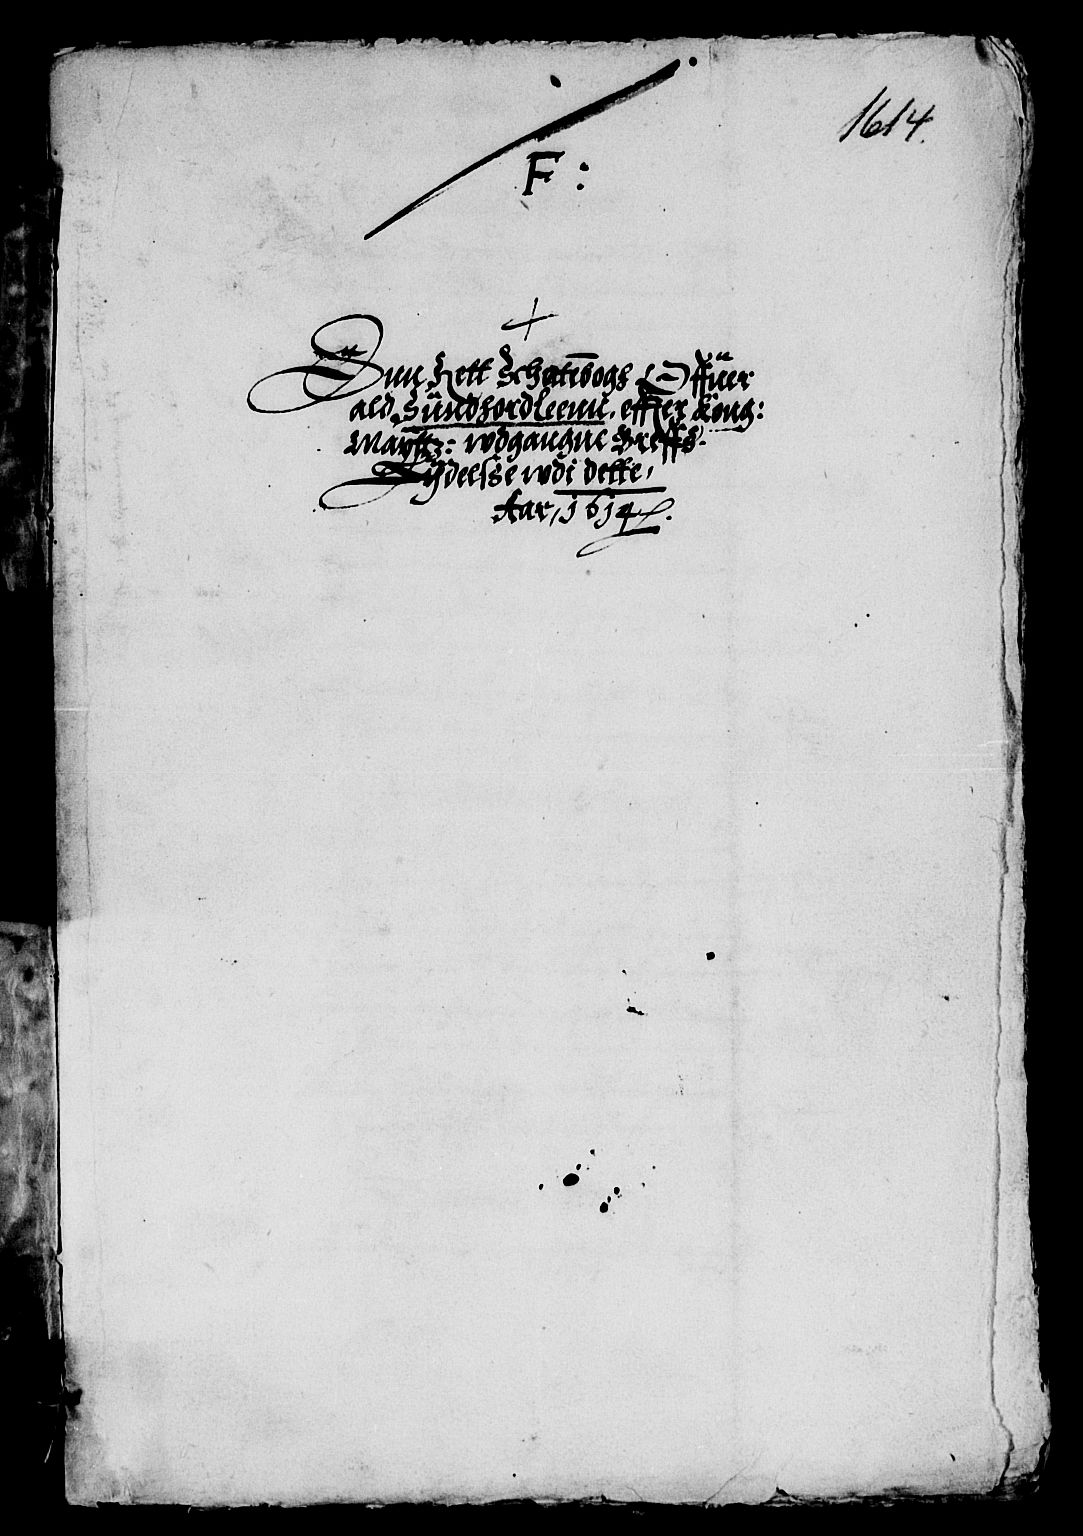 1614.
F:
Enn Rett Schattbogh Offuer
ald Sündfordleenn, effter Kong:
Mayttz: wdgangne Breffs
Lydelsse wdi dette,
Aar, 1614.